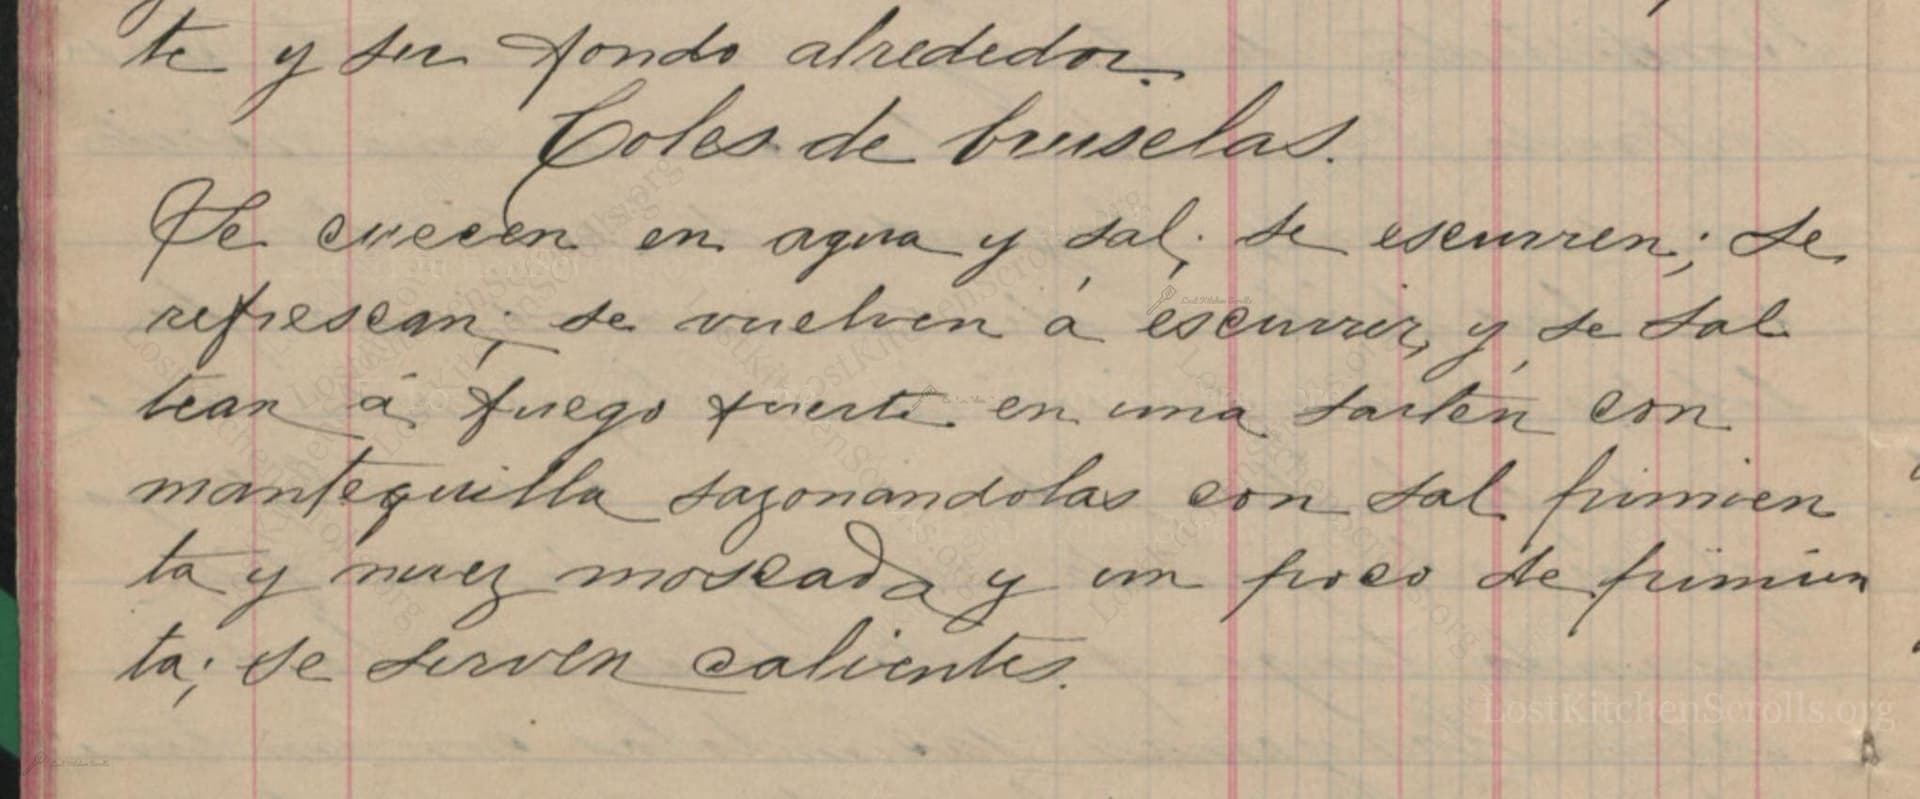 te y su fondo alrededor.
Coles de bruselas.
Se cuecen en agua y sal; se escurren; se
refrescan; se vuelven á escurrir, y se sal
tean á fuego fuerte en una sartén con
mantequilla sazonandolas con sal pimien
ta y nuez moscada y un poco de pimien
ta; se serven calientes.
LostKitchenScrolls.org